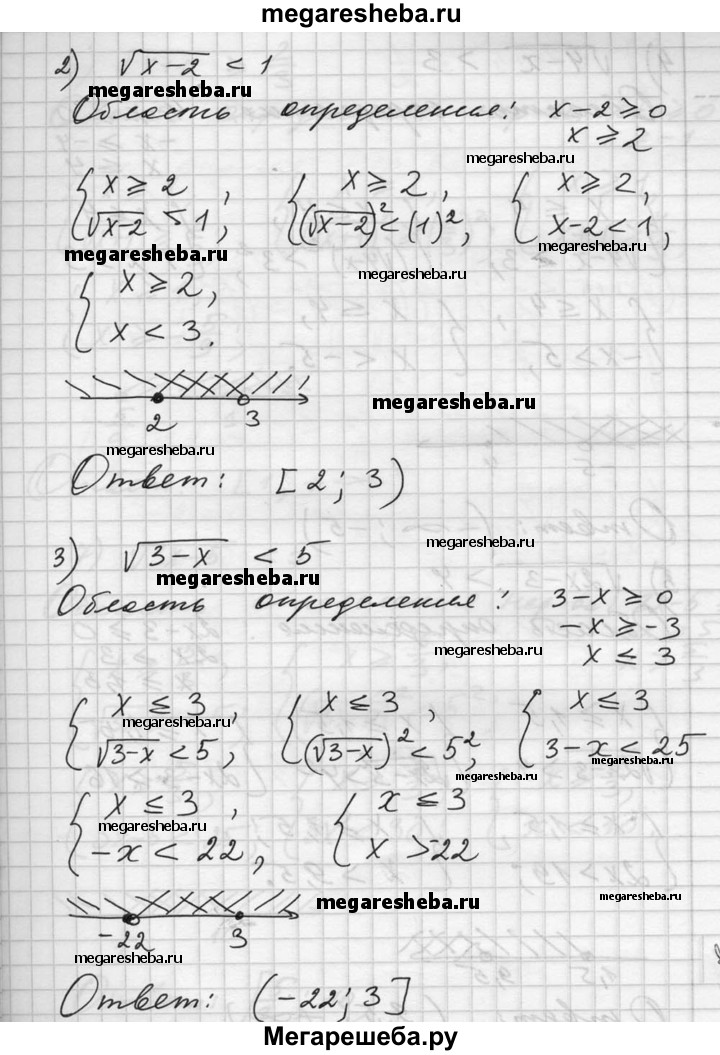 megaresheba.ru
2) √(x-2) < 1
megaresheba.ru
Область определения: x-2≥0
x≥2
megaresheba.ru
{ x≥2, { x≥2, { x≥2,
√(x-2) < 1, (√(x-2))² < (1)², x-2 < 1,
megaresheba.ru
megaresheba.ru
megaresheba.ru
{ x≥2,
x < 3.
2 3
megaresheba.ru
megaresheba.ru
Ответ: [2; 3)
megaresheba.ru
3) √(3-x) < 5
megaresheba.ru
Область определения: 3-x≥0
-x≥-3
megaresheba.ru
x≤3
{ x≤3, { x≤3, { x≤3
megaresheba.ru
√(3-x) < 5, (√(3-x))² < 5², 3-x < 25
megaresheba.ru
megaresheba.ru
{ x≤3, { x≤3
megaresheba.ru
-x < 22, x > -22
megaresheba.ru
megaresheba.ru
-22 3
megaresheba.ru
Ответ: (-22; 3]
Мегарешеба.ру